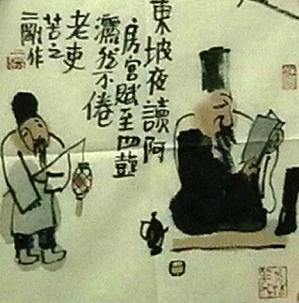 東坡夜讀阿
房宮賦至四鼓
灑然不倦
老吏
苦之
二剛作